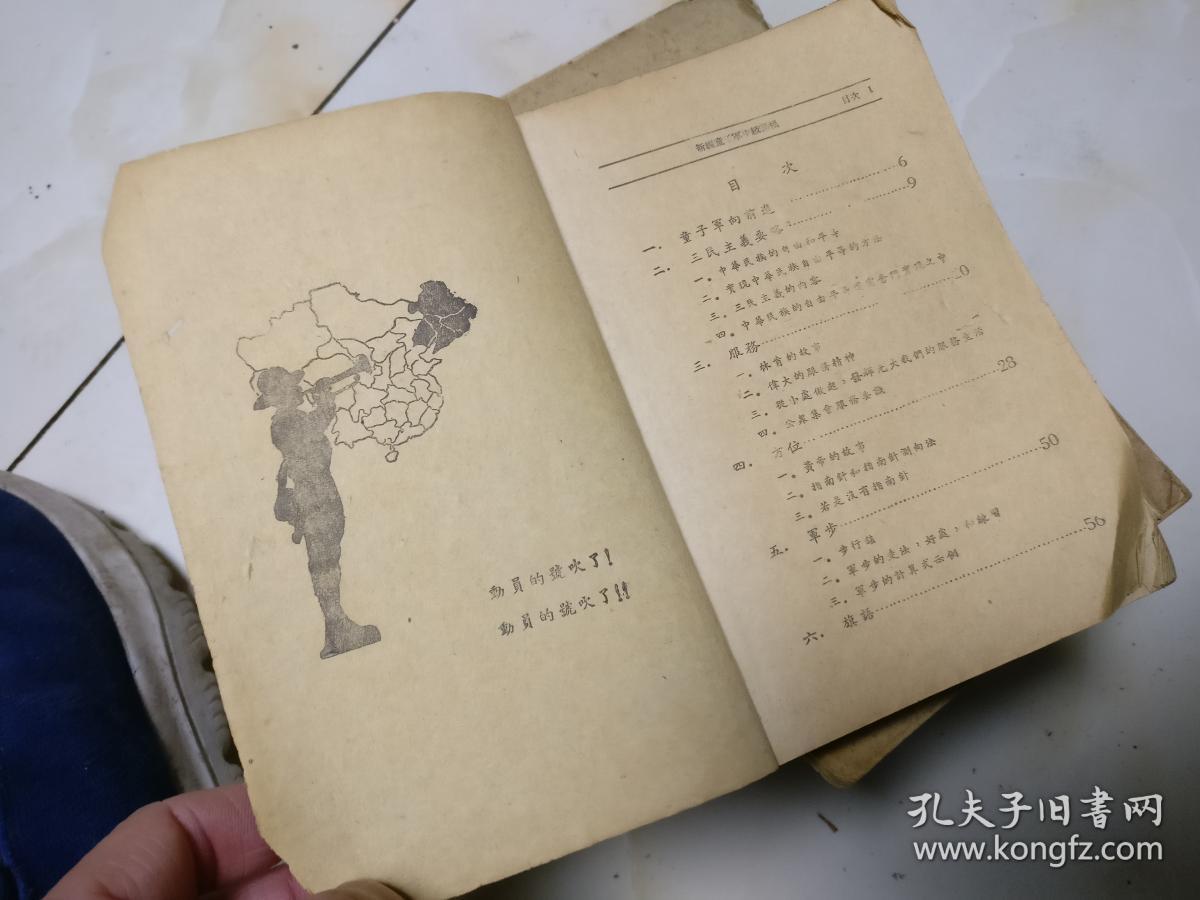 動員的號吹了!
動員的號吹了!!
目次 1
新編童子軍中級課程
目 次
一. 童子軍向前進 6
二. 三民主義要略 9
一. 中華民族的自由和平等
二. 實現中華民族自由平等的方法
三. 三民主義的內容
四. 中華民族的自由平等
三. 服務 20
一. 林肯的故事
二. 偉大的服務精神
三. 從小處做起,發輝光大我們的服務生活
四. 公眾集會服務要識
四. 方位 28
一. 黃帝的故事
二. 指南針和指南針測向法
三. 若是沒有指南針
五. 軍步 50
一. 步行詣
二. 軍步的走法,好處,和練習
三. 軍步的計算式示例
六. 旗語 56
孔夫子旧书网
www.kongfz.com